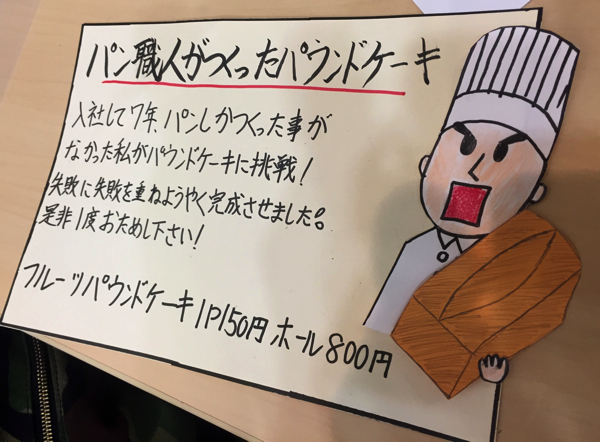 パン職人がつくったパウンドケーキ
入社して7年、パンしかつくった事が
なかった私がパウンドケーキに挑戦!
失敗に失敗を重ねようやく完成させました。
是非1度おためし下さい!
フルーツパウンドケーキ1P150円 ホール800円